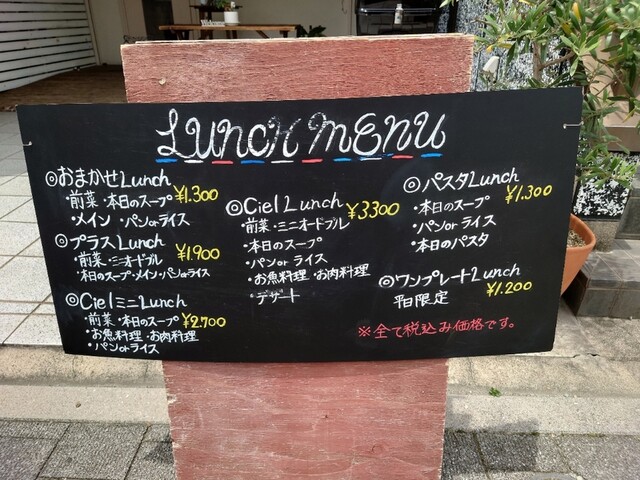 LUNCH MENU
◎おまかせLunch
・前菜・本日のスープ ¥1.300
・メイン・パンorライス
◎プラスLunch
・前菜・ミニオードブル ¥1.900
・本日のスープ・メイン・パンorライス
◎CielミニLunch
・前菜・本日のスープ ¥2.700
・お魚料理・お肉料理
・パンorライス
◎Ciel Lunch ¥3300
・前菜・ミニオードブル
・本日のスープ
・パンorライス
・お魚料理・お肉料理
・デザート
◎パスタLunch
・本日のスープ ¥1.300
・パンorライス
・本日のパスタ
◎ワンプレートLunch
平日限定 ¥1.200
※全て税込み価格です。